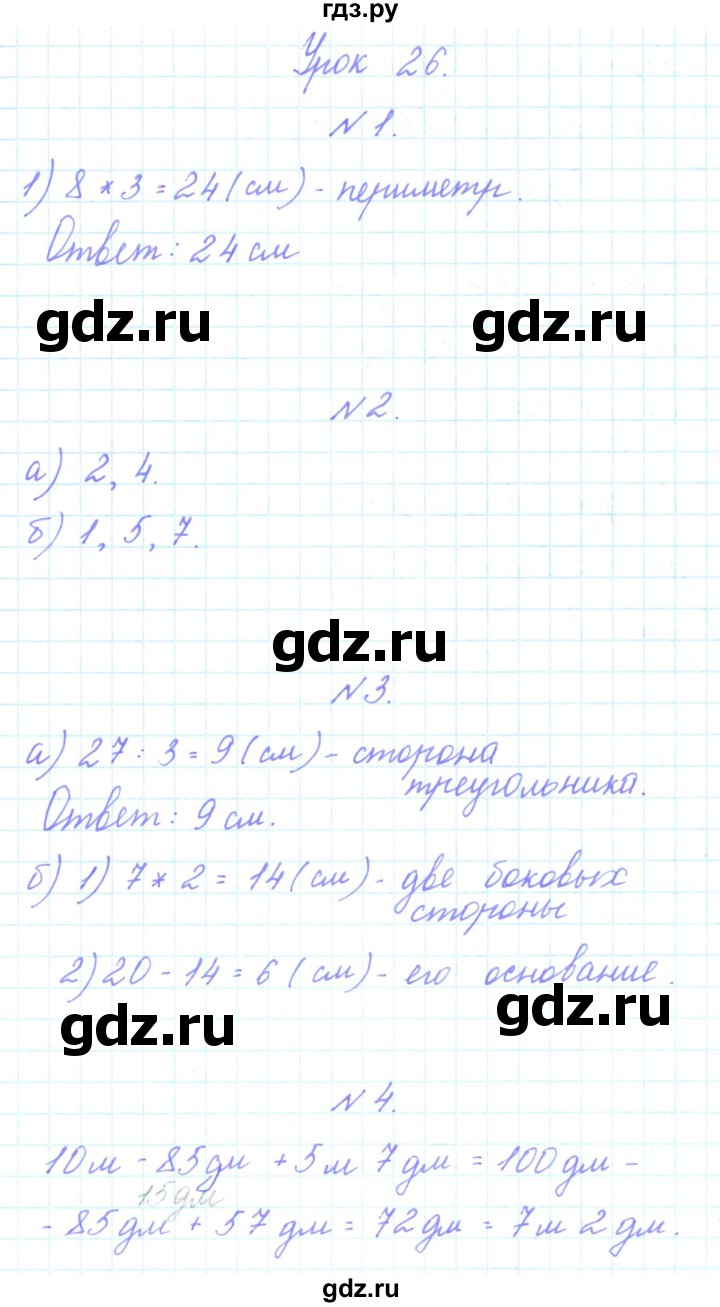 гдз.ру
Урок 26.
№1.
1) 8 * 3 = 24 (см) - периметр.
Ответ: 24 см
gdz.ru gdz.ru
№2.
а) 2, 4.
б) 1, 5, 7.
gdz.ru
№3.
а) 27 : 3 = 9 (см) - сторона
треугольника.
Ответ: 9 см.
б) 1) 7 * 2 = 14 (см) - две боковых
стороны
2) 20 - 14 = 6 (см) - его основание.
gdz.ru gdz.ru
№4.
10 м - 85 дм + 5 м 7 дм = 100 дм -
15 дм
- 85 дм + 57 дм = 72 дм = 7 м 2 дм.
gdz.ru